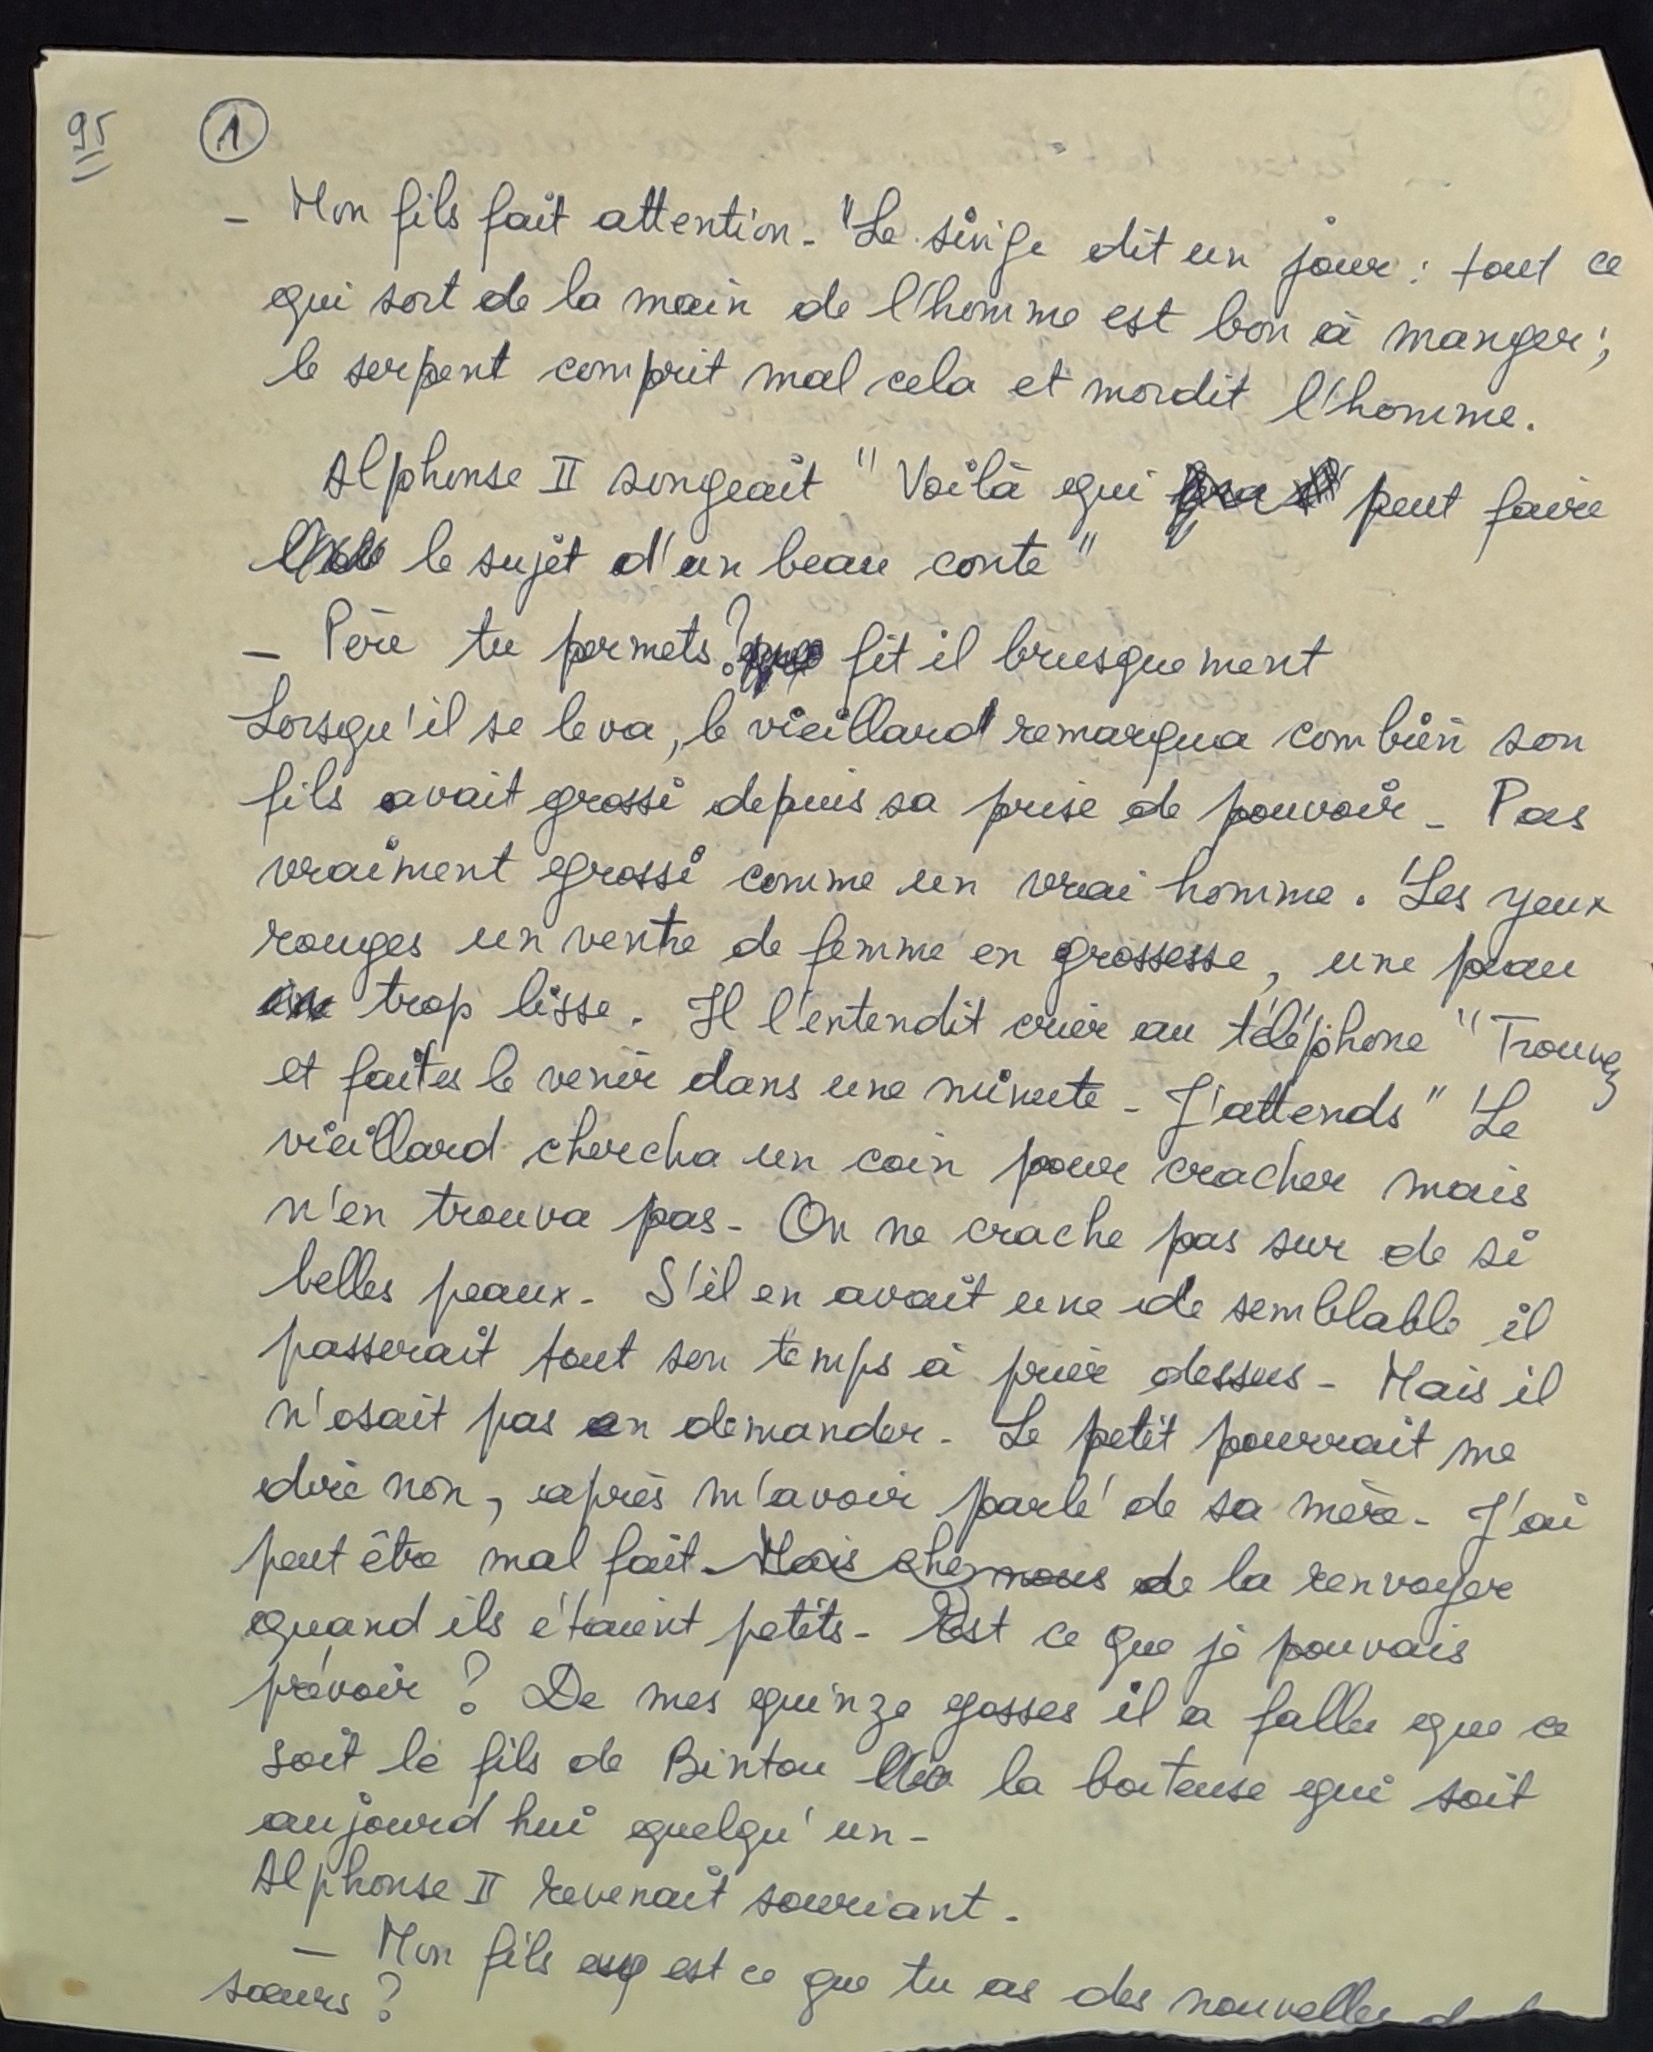 95
1
- Mon fils fait attention - "Le singe dit un jour : tout ce
qui sort de la main de l'homme est bon à manger ;
le serpent comprit mal cela et mordit l'homme.
Alphonse II songeait " Voilà qui peut faire
le sujet d'un beau conte "
- Père tu permets ? fit il brusquement
Lorsqu'il se leva, le vieillard remarqua combien son
fils avait grossi depuis sa prise de pouvoir - Pas
vraiment grossi comme un vrai homme . Les yeux
rouges un ventre de femme en grossesse, une peau
trop lisse. Il l'entendit crier au téléphone " Trouvez
et faites le venir dans une minute - J'attends " Le
vieillard chercha un coin pour cracher mais
n'en trouva pas - On ne crache pas sur de si
belles peaux - S'il en avait une de semblable il
passerait tout son temps à prier dessus - Mais il
n'osait pas en demander - Le petit pourrait me
dire non, après m'avoir parlé de sa mère - J'ai
peut être mal fait - de la renvoyer
quand ils étaient petits - Est ce que je pouvais
prévoir ? De mes quinze gosses il a fallu que ce
soit le fils de Bintou la boiteuse qui soit
aujourd hui quelqu'un -
Alphonse II revenait souriant -
- Mon fils est ce que tu as des nouvelles
sœurs ?